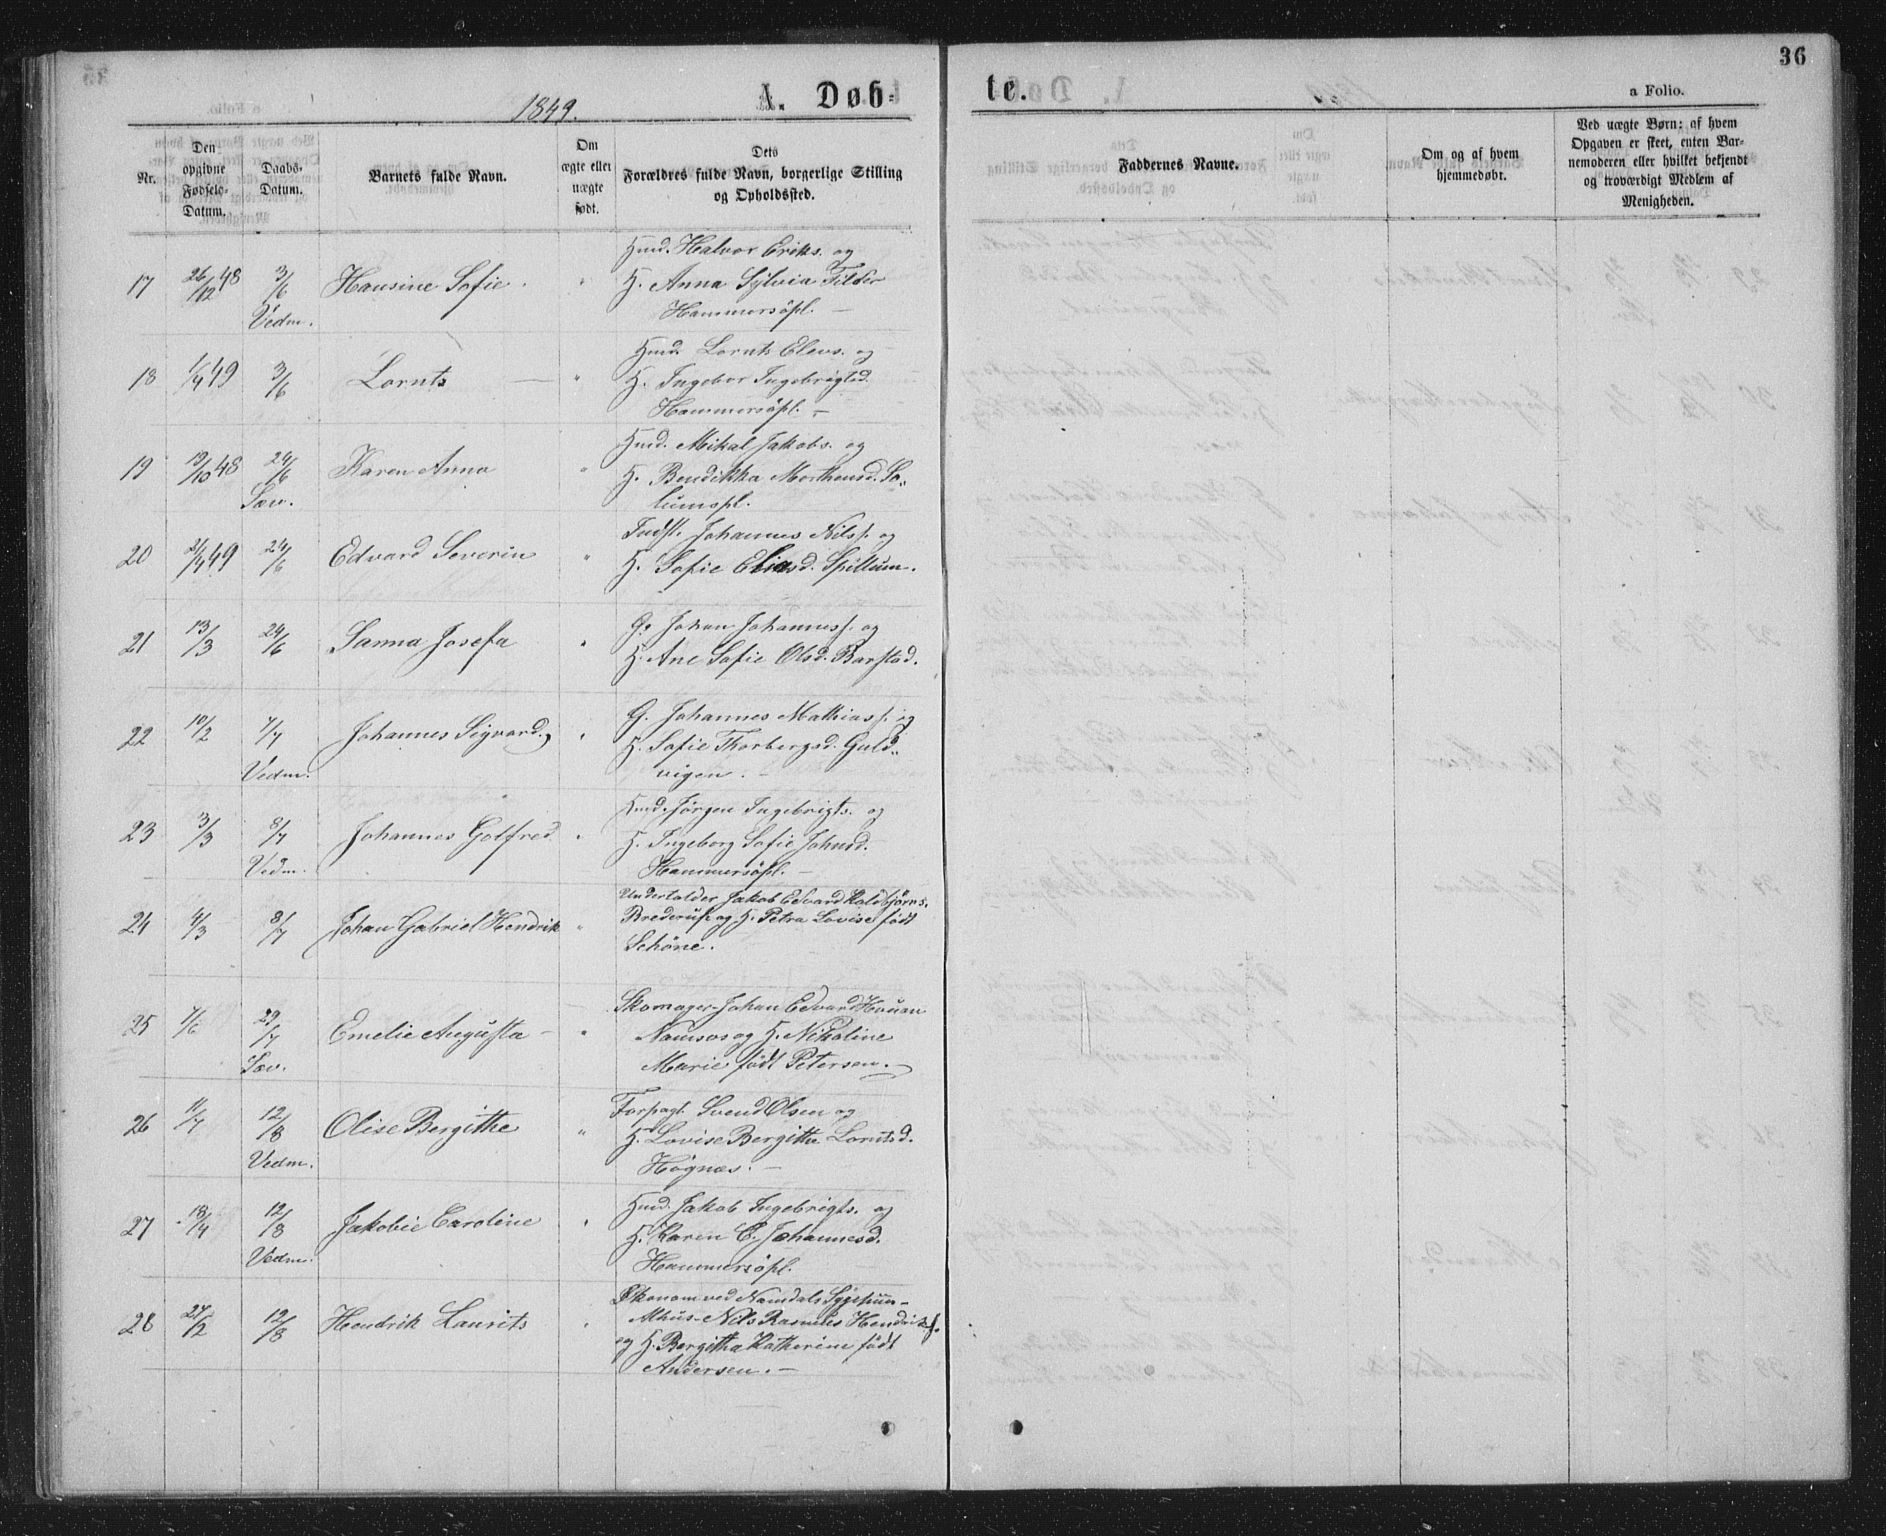 36
1849.
A. Døb-
te.
a Folio.
Nr.
Den
opgivne
Fødsels-
Datum.
Daabs-
Datum.
Barnets fulde Navn.
Om
ægte eller
uægte
født.
Dets
Forældres fulde Navn, borgerlige Stilling
og Opholdssted.
Faddernes Navne.
Om og af hvem
hjemmedøbt.
Ved uægte Børn: af hvem
Opgaven er skeet, enten Bar-
nemoderen eller hvilket bekjendt
og troværdigt Medlem af
Menigheden.
Hmd. Halvor Eriks. og
17 26/12 48 3/6 Hansine Sofie. " H. Anna Sylvia Tilder
Vedm. Hammersöpl. —
Hmd. Lornts Elevs. og
18 1/4 49 3/6 Lornts — " H. Ingebor Ingebrigtsd.
Hammersöpl. —
Hmd. Mikal Jakobs. og
19 19/10 48 24/6 Karen Anna " H. Bendikka Morthensd. Sa-
Sæv. lumspl.
Indst. Johannes Nilss. og
20 21/4 49 24/6 Edvard Severin " H. Sofie Eliasd. Spillum.
G. Johan Johanness. og
21 13/3 24/6 Sanna Josefa " H. Ane Sofie Olsd. Barstad.
G. Johannes Mathiass. og
22 10/2 7/7 Johannes Sigvard. " H. Sofie Thorbergsd. Guld-
Vedm. vigen. —
Hmd. Jørgen Ingebrigts. og
23 3/3 8/7 Johannes Gotfred " H. Ingeborg Sofie Johnsd.
Vedm. Hammersöpl. —
Undertolder Jakob Edvard Koldbjørns.
24 4/3 8/7 Johan Gabriel Hendrik " Brederup og H. Petra Lovise født
Schöne.
Skomager Johan Edvard Hvuan
25 7/6 29/7 Emelie Augusta — " Namsos og H. Nikoline
Sæv. Marie født Petersen.
Forpagt. Svend Olsen og
26 11/7 12/8 Olise Bergithe " H. Lovise Bergithe Lorntsd.
Vedm. Högnæs. —
Hmd. Jakob Ingebrigts. og
27 18/4 12/8 Jakobie Caroline " H. Karen E. Johannesd.
Vedm. Hammersöpl.
Økonom ved Namdals Sygehuu-
28 27/2 12/8 Hendrik Laurits " Nils Rasmus Hendriks.
og H. Bergitha Katherine født
Andersen. —